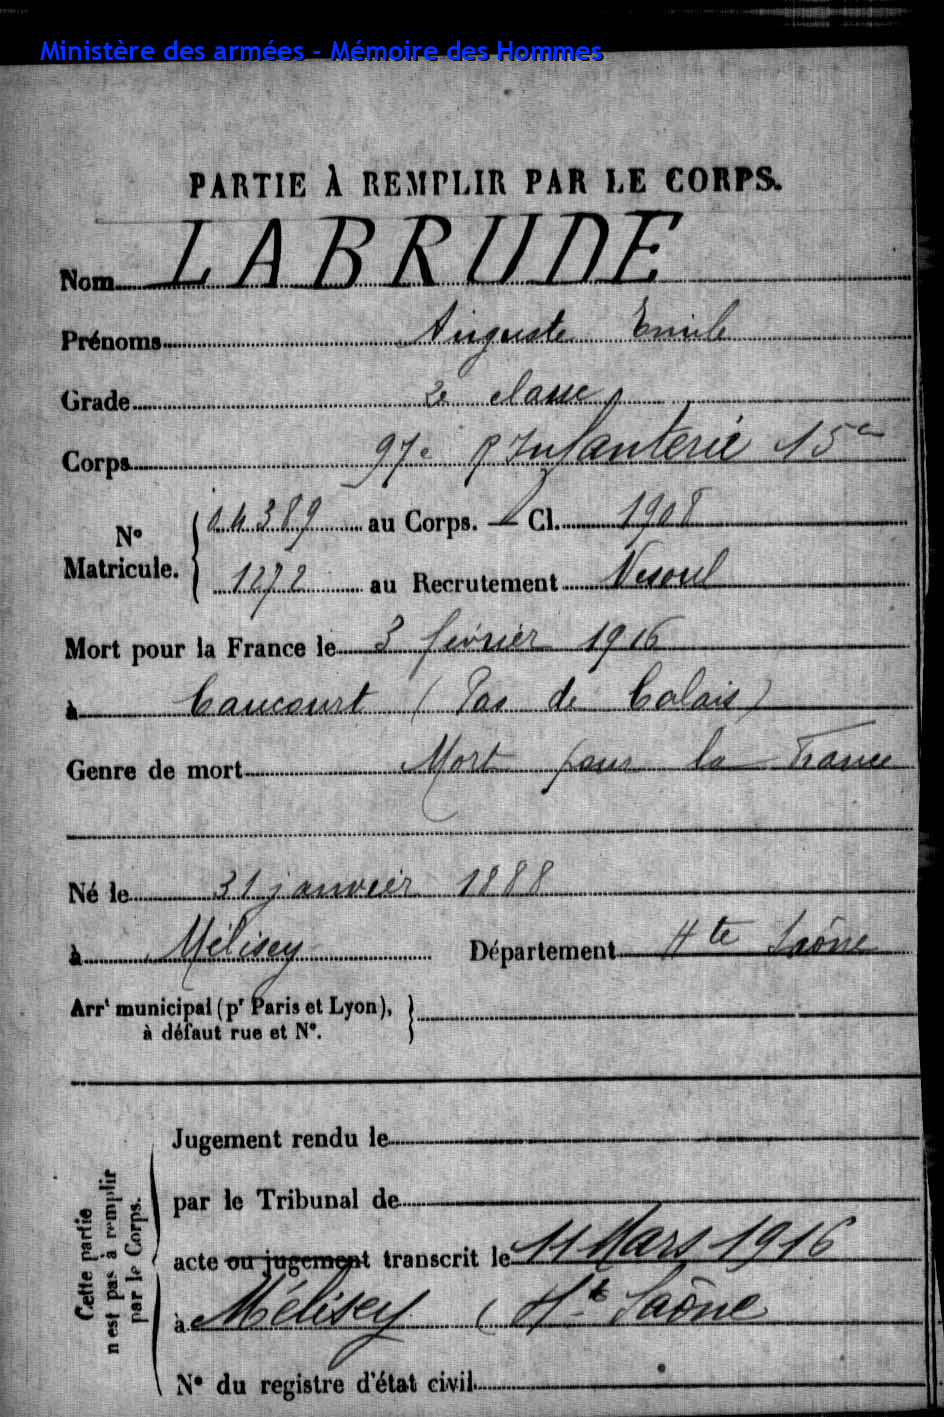 Ministère des armées - Mémoire des Hommes
PARTIE À REMPLIR PAR LE CORPS.
Nom LABRUDE
Prénoms Auguste Emile
Grade 2e classe
Corps 97e R Infanterie 15 Cie
No Matricule. { 04389 au Corps. — Cl. 1908
1272 au Recrutement Vesoul
Mort pour la France le 3 février 1916
à Caucourt (Pas de Calais)
Genre de mort Mort pour la France
Né le 31 janvier 1888
à Mélisey Département Hte Saône
Arrt municipal (pr Paris et Lyon), }
à défaut rue et No.
Cette partie
n'est pas à remplir
par le Corps.
Jugement rendu le
par le Tribunal de
acte ou jugement transcrit le 11 Mars 1916
à Mélisey (Hte Saône
No du registre d'état civil